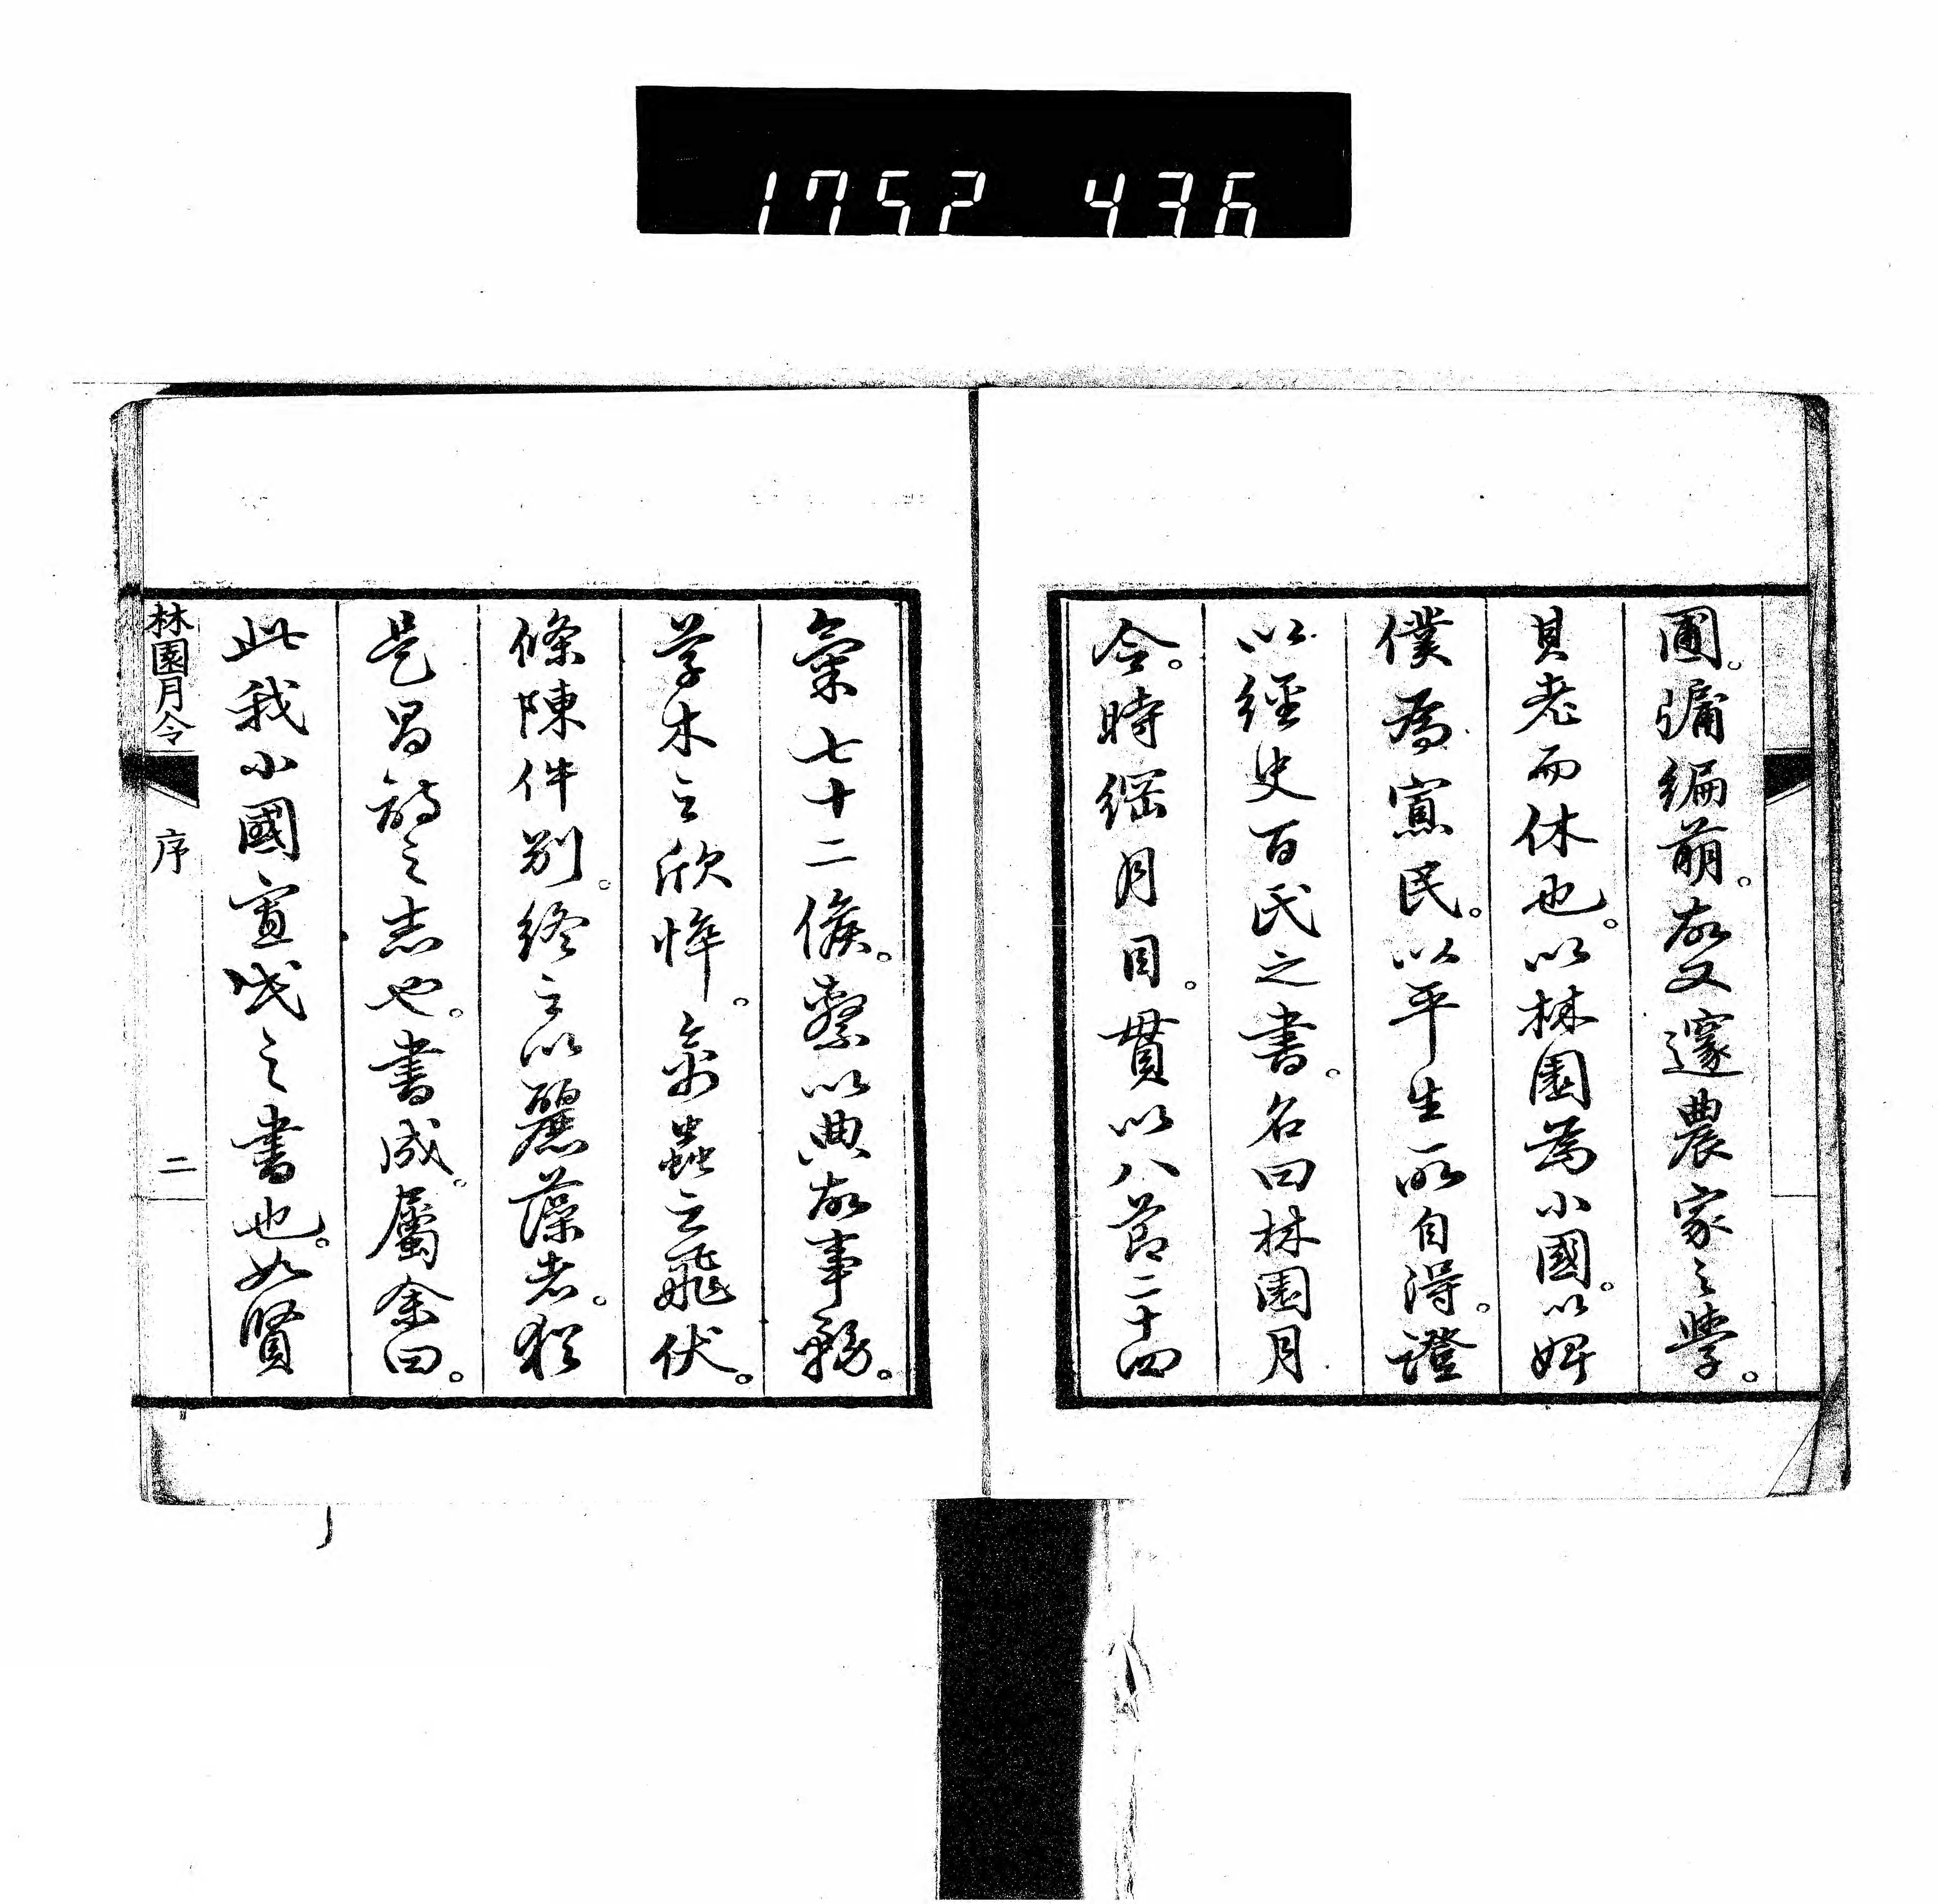 1752 436
圃。彌編萠。故又邃農家之學。
其老而休也。以林園爲小國。以婢
僕爲寡民。以平生所自得。證
以經史百氏之書。名曰林園月
令。時綱月目。貫以八節二十四
氣七十二候。繫以典故事務。
草木之欣悴。禽蟲之飛伏。
條陳件別。終之以麗藻者。猶
是昌詩之志也。書成。屬余曰。
此我小國憲民之書也。如賢
林園月令
序
二